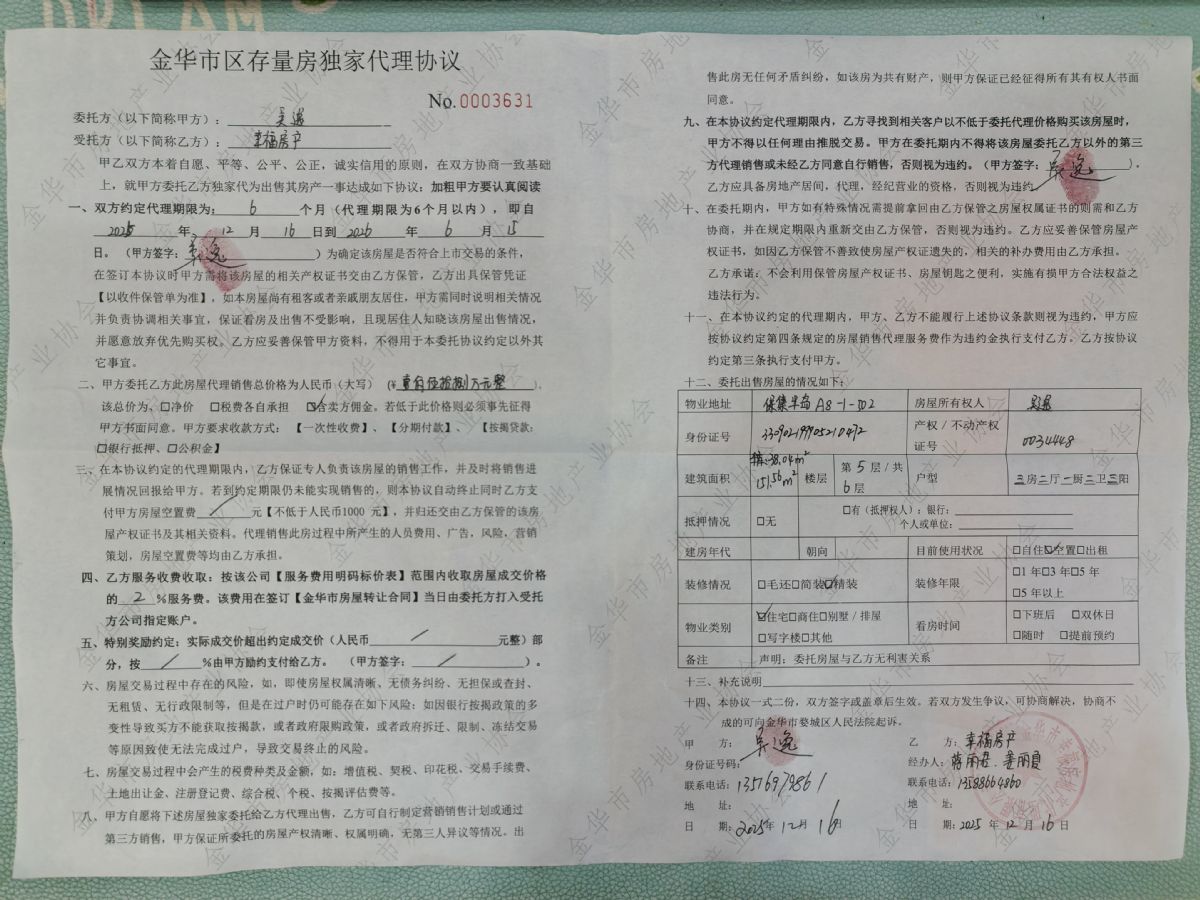 金华市区存量房独家代理协议
No.0003631
委托方（以下简称甲方）：吴逸
受托方（以下简称乙方）：幸福房产
甲乙双方本着自愿、平等、公平、公正，诚实信用的原则，在双方协商一致基础
上，就甲方委托乙方独家代为出售其房产一事达成如下协议；加粗甲方要认真阅读
一、双方约定代理期限为：6个月（代理期限为6个月以内），即自
2025年12月16日到2026年6月15
日。（甲方签字：吴逸）为确定该房是否符合上市交易的条件，
在签订本协议时甲方需将该房屋的相关产权证书交由乙方保管，乙方出具保管凭证
【以收件保管单为准】，如本房屋尚有租客或者亲戚朋友居住，甲方需同时说明相关情况
并负责协调相关事宜，保证看房及出售不受影响，且现居住人知晓该房屋出售情况，
并愿意放弃优先购买权。乙方应妥善保管甲方资料，不得用于本委托协议约定以外其
它事宜。
二、甲方委托乙方此房屋代理销售总价格为人民币（大写）（¥壹百伍拾捌万元整）.
该总价为、□净价 □税费各自承担 ☑含卖方佣金。若低于此价格则必须事先征得
甲方书面同意。甲方要求收款方式：【一次性收费】、【分期付款】、【按揭贷款：
□银行抵押、□公积金】
三、在本协议约定的代理期限内，乙方保证专人负责该房屋的销售工作，并及时将销售进
展情况回报给甲方。若到约定期限仍未能实现销售的，则本协议自动终止同时乙方支
付甲方房屋空置费 / 元【不低于人民币1000 元】，并归还交由乙方保管的该房
屋产权证书及其相关资料。代理销售此房过程中所产生的人员费用、广告，风险，营销
策划，房屋空置费等均由乙方承担。
四、乙方服务收费收取：按该公司【服务费用明码标价表】范围内收取房屋成交价格
的 2 %服务费。该费用在签订【金华市房屋转让合同】当日由委托方打入受托
方公司指定账户。
五、特别奖励约定：实际成交价超出约定成交价（人民币 / 元整）部
分，按 / %由甲方励约支付给乙方。（甲方签字： / ）。
六、房屋交易过程中存在的风险，如，即使房屋权属清晰、无债务纠纷、无担保或查封、
无租赁、无行政限制等，但是在过户时仍可能存在如下风险：如因银行按揭政策的多
变性导致买方不能获取按揭款，或者政府限购政策，或者政府拆迁、限制、冻结交易
等原因致使无法完成过户，导致交易终止的风险。
七、房屋交易过程中会产生的税费种类及金额，如：增值税、契税、印花税、交易手续费、
土地出让金、注册登记费、综合税、个税、按揭评估费等。
八、甲方自愿将下述房屋独家委托给乙方代理出售，乙方可自行制定营销销售计划或通过
第三方销售，甲方保证所委托的房屋产权清晰、权属明确，无第三人异议等情况。出
售此房无任何矛盾纠纷，如该房为共有财产，则甲方保证已经征得所有其有权人书面
同意。
九、在本协议约定代理期限内，乙方寻找到相关客户以不低于委托代理价格购买该房屋时，
甲方不得以任何理由推脱交易。甲方在委托期内不得将该房屋委托乙方以外的第三
方代理销售或未经乙方同意自行销售，否则视为违约。（甲方签字：吴逸）.
乙方应具备房地产居间，代理，经纪营业的资格，否则视为违约
十、在委托期内，甲方如有特殊情况需提前拿回由乙方保管之房屋权属证书的则需和乙方
协商，并在规定期限内重新交由乙方保管，否则视为违约。乙方应妥善保管房屋产
权证书，如因乙方保管不善致使房屋产权证遗失的，相关的补办费用由乙方承担。
乙方承诺：不会利用保管房屋产权证书、房屋钥匙之便利，实施有损甲方合法权益之
违法行为。
十一、在本协议约定的代理期内，甲方、乙方不能履行上述协议条款则视为违约，甲方应
按协议约定第四条规定的房屋销售代理服务费作为违约金执行支付乙方。乙方按协议
约定第三条执行支付甲方。
十二、委托出售房屋的情况如下：
物业地址 保集半岛 A8-1-502 房屋所有权人 吴逸
身份证号 330902199905210472 产权/不动产权证号 0034448
建筑面积 151.56m² 38.04m² 楼层 第5层/共6层 户型 三房二厅一厨三卫三阳
抵押情况 □无 □有（抵押权人）：银行：
个人或单位：
建房年代 朝向 目前使用状况 □自住☑空置□出租
装修情况 □毛还□简装☑精装 装修年限 □1年□3年□5年
□5年以上
物业类别 ☑住宅□商住□别墅/排屋
□写字楼□其他 看房时间 □下班后 □双休日
□随时 □提前预约
备注 声明：委托房屋与乙方无利害关系
十三、补充说明
十四、本协议一式二份，双方签字或盖章后生效。若双方发生争议，可协商解决，协商不
成的可向金华市婺城区人民法院起诉。
甲 方：吴逸 乙 方：幸福房产
身份证号码： 经办人：蒋丽君.姜丽霞
联系电话：13516979861 联系电话：13588664860
地 址： 地 址：
日 期：2025年12月16日 日 期：2025年12月16日